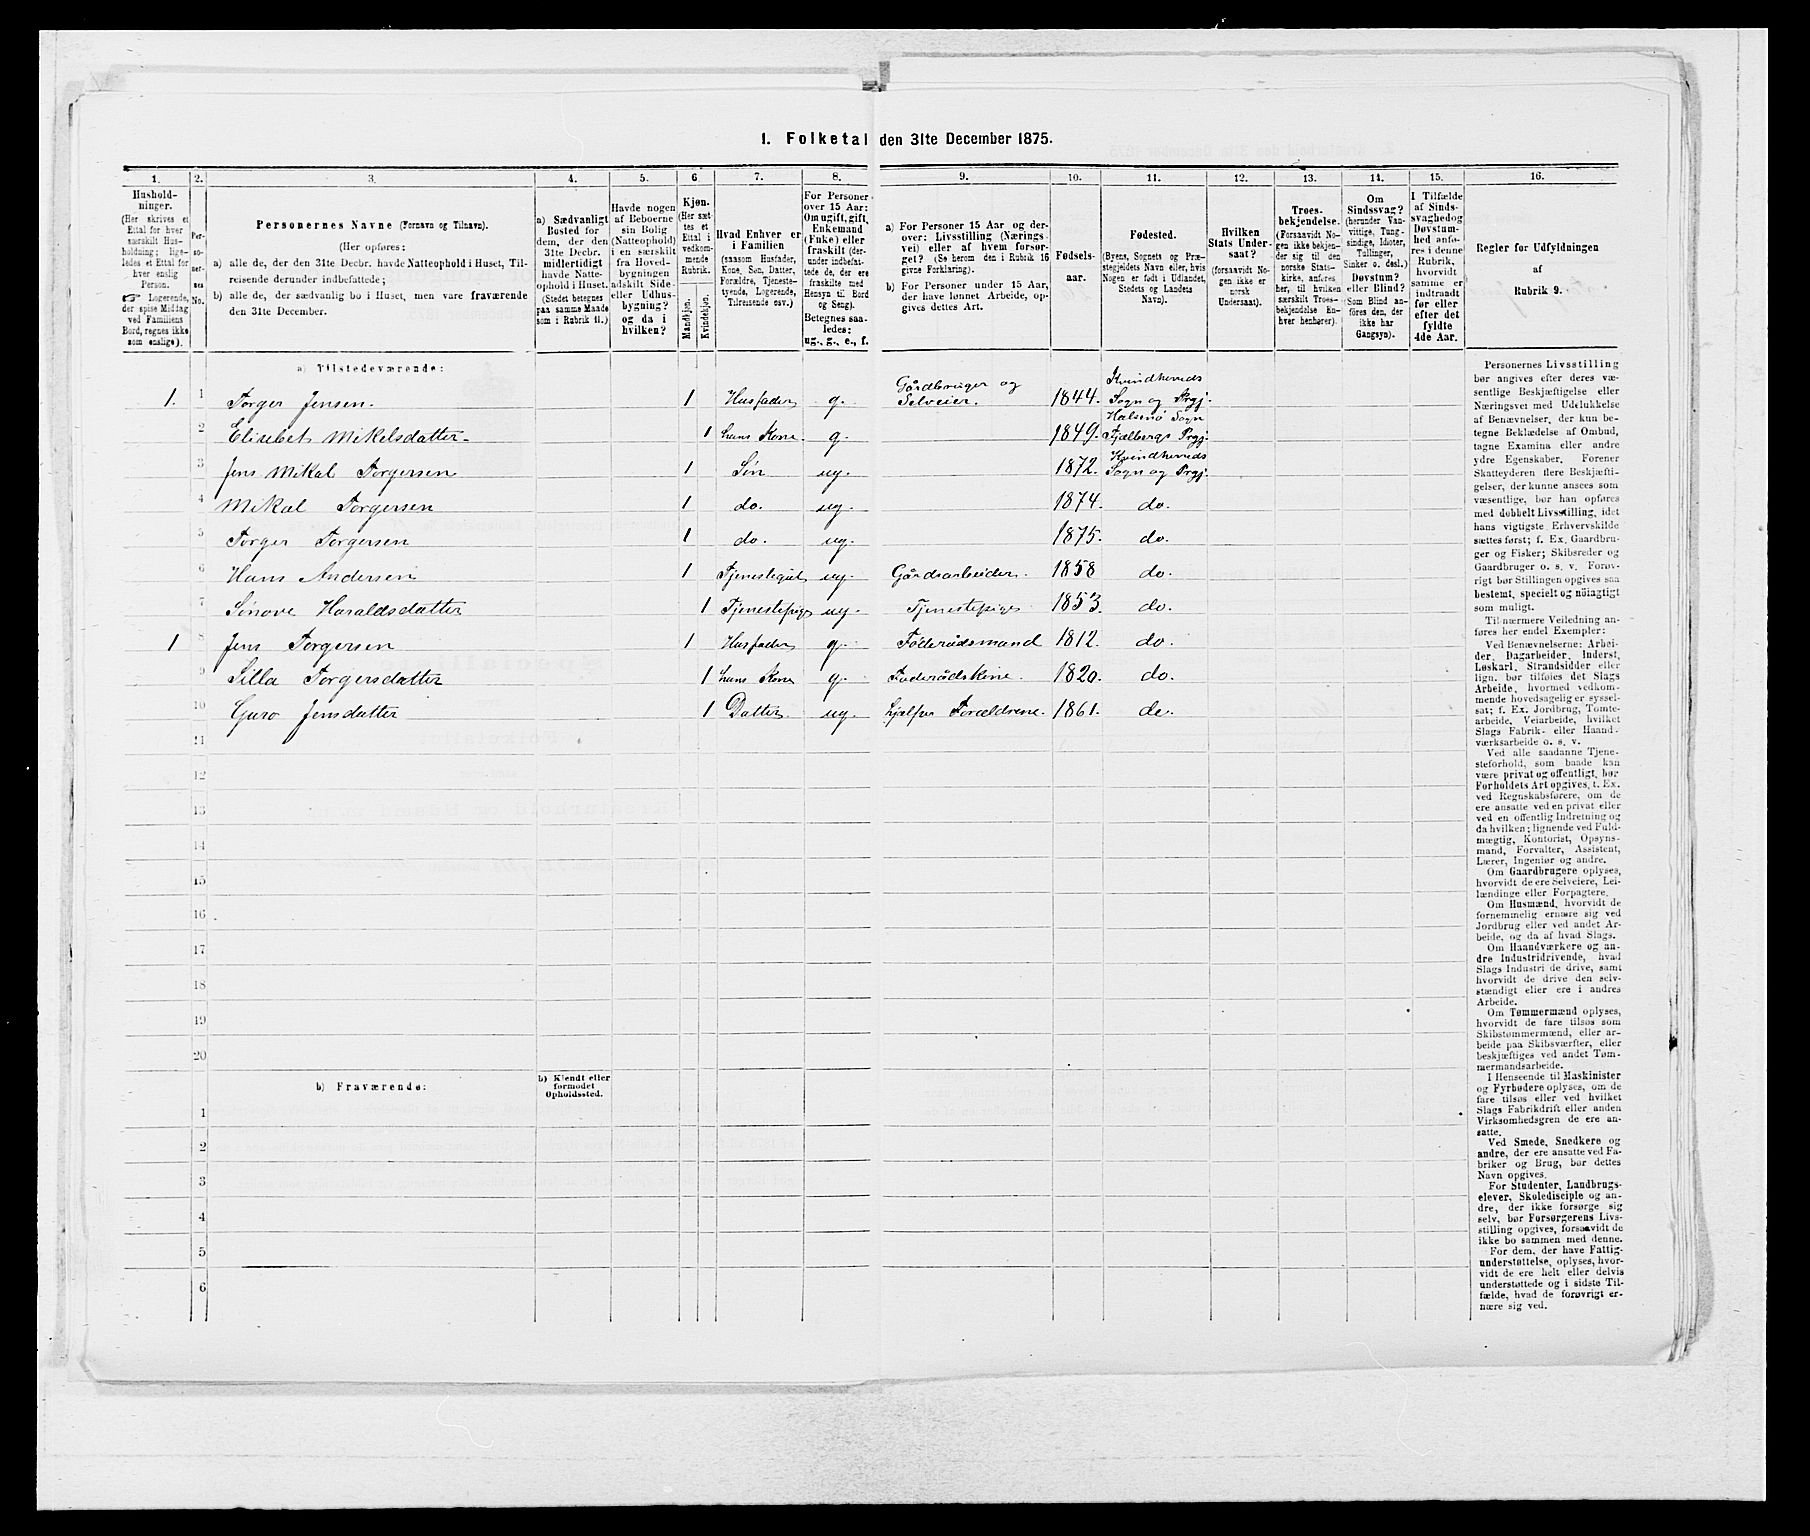 1. Folketal den 31te December 1875.
1. 2. 3. 4. 5. 6. 7. 8. 9. 10. 11. 12. 13. 14. 15. 16.
Hushold-
ninger.
(Her skrives et
Ettal for hver
særskilt Hus-
holdning; lige-
ledes et Ettal for
hver enslig
Person.
☞ Logerende,
der spise Middag
ved Familiens
Bord, regnes ikke
som enslige).
Per-
so-
ner-
nes
No.
Personernes Navne (Fornavn og Tilnavn).
(Her opføres:
a) alle de, der den 31te Decbr. havde Natteophold i Huset, Til-
reisende derunder indbefattede;
b) alle de, der sædvanlig bo i Huset, men vare fraværende
den 31te December.
a) Sædvanligt
Bosted for
dem, der den
31te Decbr.
midlertidigt
havde Natte-
ophold i Huset.
(Stedet betegnes
paa samme Maade
som i Rubrik 11.)
Havde nogen
af Beboerne
sin Bolig
(Natteophold)
i en særskilt
fra Hoved-
bygningen
adskilt Side-
eller Udhus-
bygning?
og da i
hvilken?
Kjøn.
(Her sæt-
tes et
Ettal i
vedkom-
mende
Rubrik.
Mandkjøn.
Kvindekjøn.
Hvad Enhver er
i Familien
(saasom Husfader,
Kone, Søn, Datter,
Forældre, Tjeneste-
tyende, Logerende,
Tilreisende osv.)
For Personer
over 15 Aar:
Om ugift, gift,
Enkemand
(Enke) eller
fraskilt (der-
under indbefat-
tede de, der ere
fraskilte med
Hensyn til Bord
og Seng).
Betegnes saa-
ledes:
ug., g., e., f.
a) For Personer 15 Aar og der-
over: Livsstilling (Nærings-
vei) eller af hvem forsør-
get? (Se herom den i Rubrik 16
givne Forklaring).
b) For Personer under 15 Aar,
der have lønnet Arbeide, op-
gives dettes Art.
Fødsels-
aar.
Fødested.
(Byens, Sognets og Præ-
stegjeldets Navn eller, hvis
Nogen er født i Udlandet,
Stedets og Landets
Navn).
Hvilken
Stats Under-
saat?
(forsaavidt No-
gen ikke er
norsk
Undersaat).
Troes-
bekjendelse.
(Forsaavidt No-
gen ikke bekjen-
der sig til den
norske Stats-
kirke, anføres
her, til hvilken
særskilt Troes-
bekjendelse En-
hver henhører).
Om
Sindssvag?
(herunder Van-
vittige, Tung-
sindige, Idioter,
Tullinger,
Sinker o. desl.)
Døvstum?
eller Blind?
(Som Blind an-
føres den, der
ikke har
Gangsyn).
I Tilfælde
af Sinds-
svaghed og
Døvstum-
hed anfø-
res i denne
Rubrik,
hvorvidt
samme er
indtraadt
før eller
efter det
fyldte
4de Aar.
Regler for Udfyldningen
af
Rubrik 9.
a) Tilstedeværende:
1. 1 Torger Jensen. 1 Husfader g. Gårdbruger og Selveier. 1844. Kvindherreds Sogn og Prgj.
2 Elisebet Mikelsdatter. 1 hans Kone. g. 1849. Halsenø Sogn Fjælbergs Prgj.
3 Jens Mikal Torgersen 1 Søn ug. 1872. Kvindherreds Sogn og Prgj.
4 Mikal Torgersen 1 do. ug. 1874. do.
5 Torger Torgersen 1 do. ug. 1875. do.
6 Hans Andersen 1 Tjenestegut ug. Gårdsarbeider. 1858 do.
7 Sinove Haraldsdatter 1 Tjenestepige ug. Tjenestepige 1853. do.
1 8 Jens Torgersen 1 Husfader g. Føderådsmand 1812. do.
9 Silla Torgersdatter 1 hans Kone g. Føderådskone. 1820. do.
10 Guro Jensdatter 1 Datter. ug. hjælper Forældrene. 1861. do.
11
12
13
14
15
16
17
18
19
20
b) Fraværende:
b) Kjendt eller
formodet
Opholdssted.
1
2
3
4
5
6
Personernes Livsstilling
bør angives efter deres væ-
sentlige Beskjæftigelse eller
Næringsvei med Udelukkelse
af Benævnelser, der kun be-
tegne Beklædelse af Ombud,
tagne Examina eller andre
ydre Egenskaber. Forener
Skatteyderen flere Beskjæfti-
gelser, der kunne ansees som
væsentlige, bør han opføres
med dobbelt Livsstilling, idet
hans vigtigste Erhvervskilde
sættes først; f. Ex. Gaardbru-
ger og Fisker; Skibsreder og
Gaardbruger o. s. v. Forøv-
rigt bør Stillingen opgives saa
bestemt, specielt og nöiagtigt
som muligt.
Til nærmere Veiledning an-
føres her endel Exempler:
Ved Benævnelserne: Arbei-
der, Dagarbeider, Inderst,
Løskarl, Strandsidder eller
lign. bør tilføies det Slags
Arbeide, hvormed vedkom-
mende hovedsagelig er syssel-
sat; f. Ex. Jordbrug, Tomte-
arbeide, Veiarbeide, hvilket
Slags Fabrik- eller Haand-
værksarbeide o. s. v.
Ved alle saadanne Tjene-
steforhold, som baade kan
være privat og offentligt, bør
Forholdets Art opgives, t. Ex.
ved Regnskabsførere, om de
ere ansatte ved en privat eller
ved en offentlig Indretning og
da hvilken; lignende ved Fuld-
mægtig, Kontorist, Opsyns-
mand, Forvalter, Assistent,
Lærer, Ingeniør og andre.
Om Gaardbrugere oplyses,
hvorvidt de ere Selveiere, Lei-
lændinge eller Forpagtere.
Om Husmænd, hvorvidt de
fornemmelig ernære sig ved
Jordbrug eller ved andet Ar-
beide, og da af hvad Slags.
Om Haandværkere og an-
dre Industridrivende, hvad
Slags Industri de drive, samt
hvorvidt de drive den selv-
stændigt eller ere i andres
Arbeide.
Om Tømmermænd oplyses,
hvorvidt de fare tilsøs som
Skibstømmermænd, eller ar-
beide paa Skibsværfter, eller
beskjæftiges ved andet Tøm-
mermandsarbeide.
I Henseende til Maskinister
og Fyrbødere oplyses, om de
fare tilsøs eller ved hvilket
Slags Fabrikdrift eller anden
Virksomhedsgren de ere an-
satte.
Ved Smede, Snedkere og
andre, der ere ansatte ved Fa-
briker og Brug, bør dettes
Navn opgives.
For Studenter, Landbrugs-
elever, Skoledisciple og an-
dre, der ikke forsørge sig
selv, bør Forsørgerens Livs-
stilling opgives, forsaavidt de
ikke bo sammen med denne.
For dem, der have Fattig-
understøttelse, oplyses, hvor-
vidt de ere helt eller delvis
understøttede og i sidste Til-
fælde, hvad de forøvrigt er-
nære sig ved.